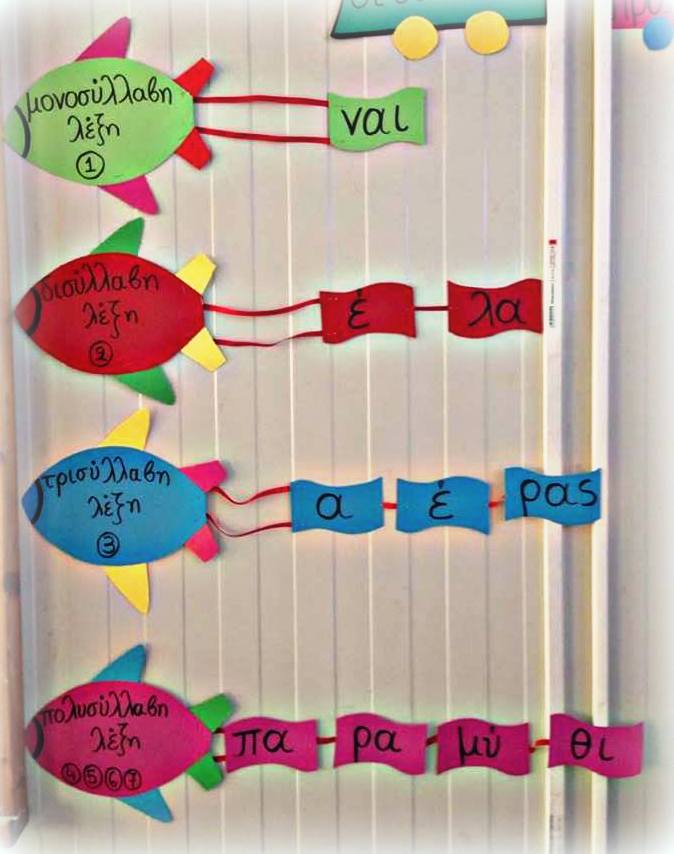 μονοσύλλαβη
λέξη
1
ναι
δισύλλαβη
λέξη
2
έ λα
τρισύλλαβη
λέξη
3
α έ ρας
πολυσύλλαβη
λέξη
4 5 6 7
πα ρα μύ θι